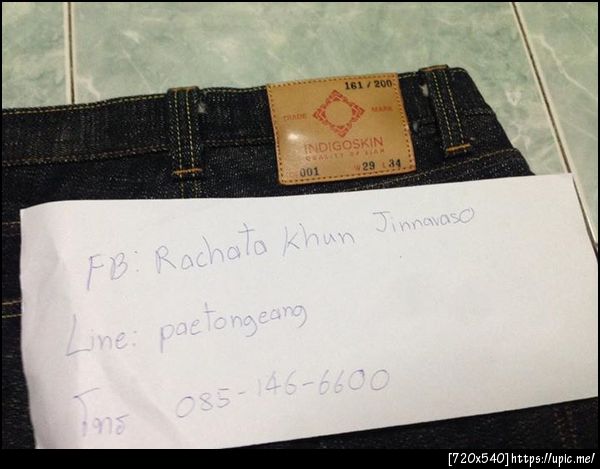 161 / 200
TRADE MARK
INDIGOSKIN
QUALITY OF SIAM
001 W 29 L 34
FB: Rachata Khun Jinnavaso
Line: paetongeang
โทร 085-146-6600
[720x540]https://upic.me/